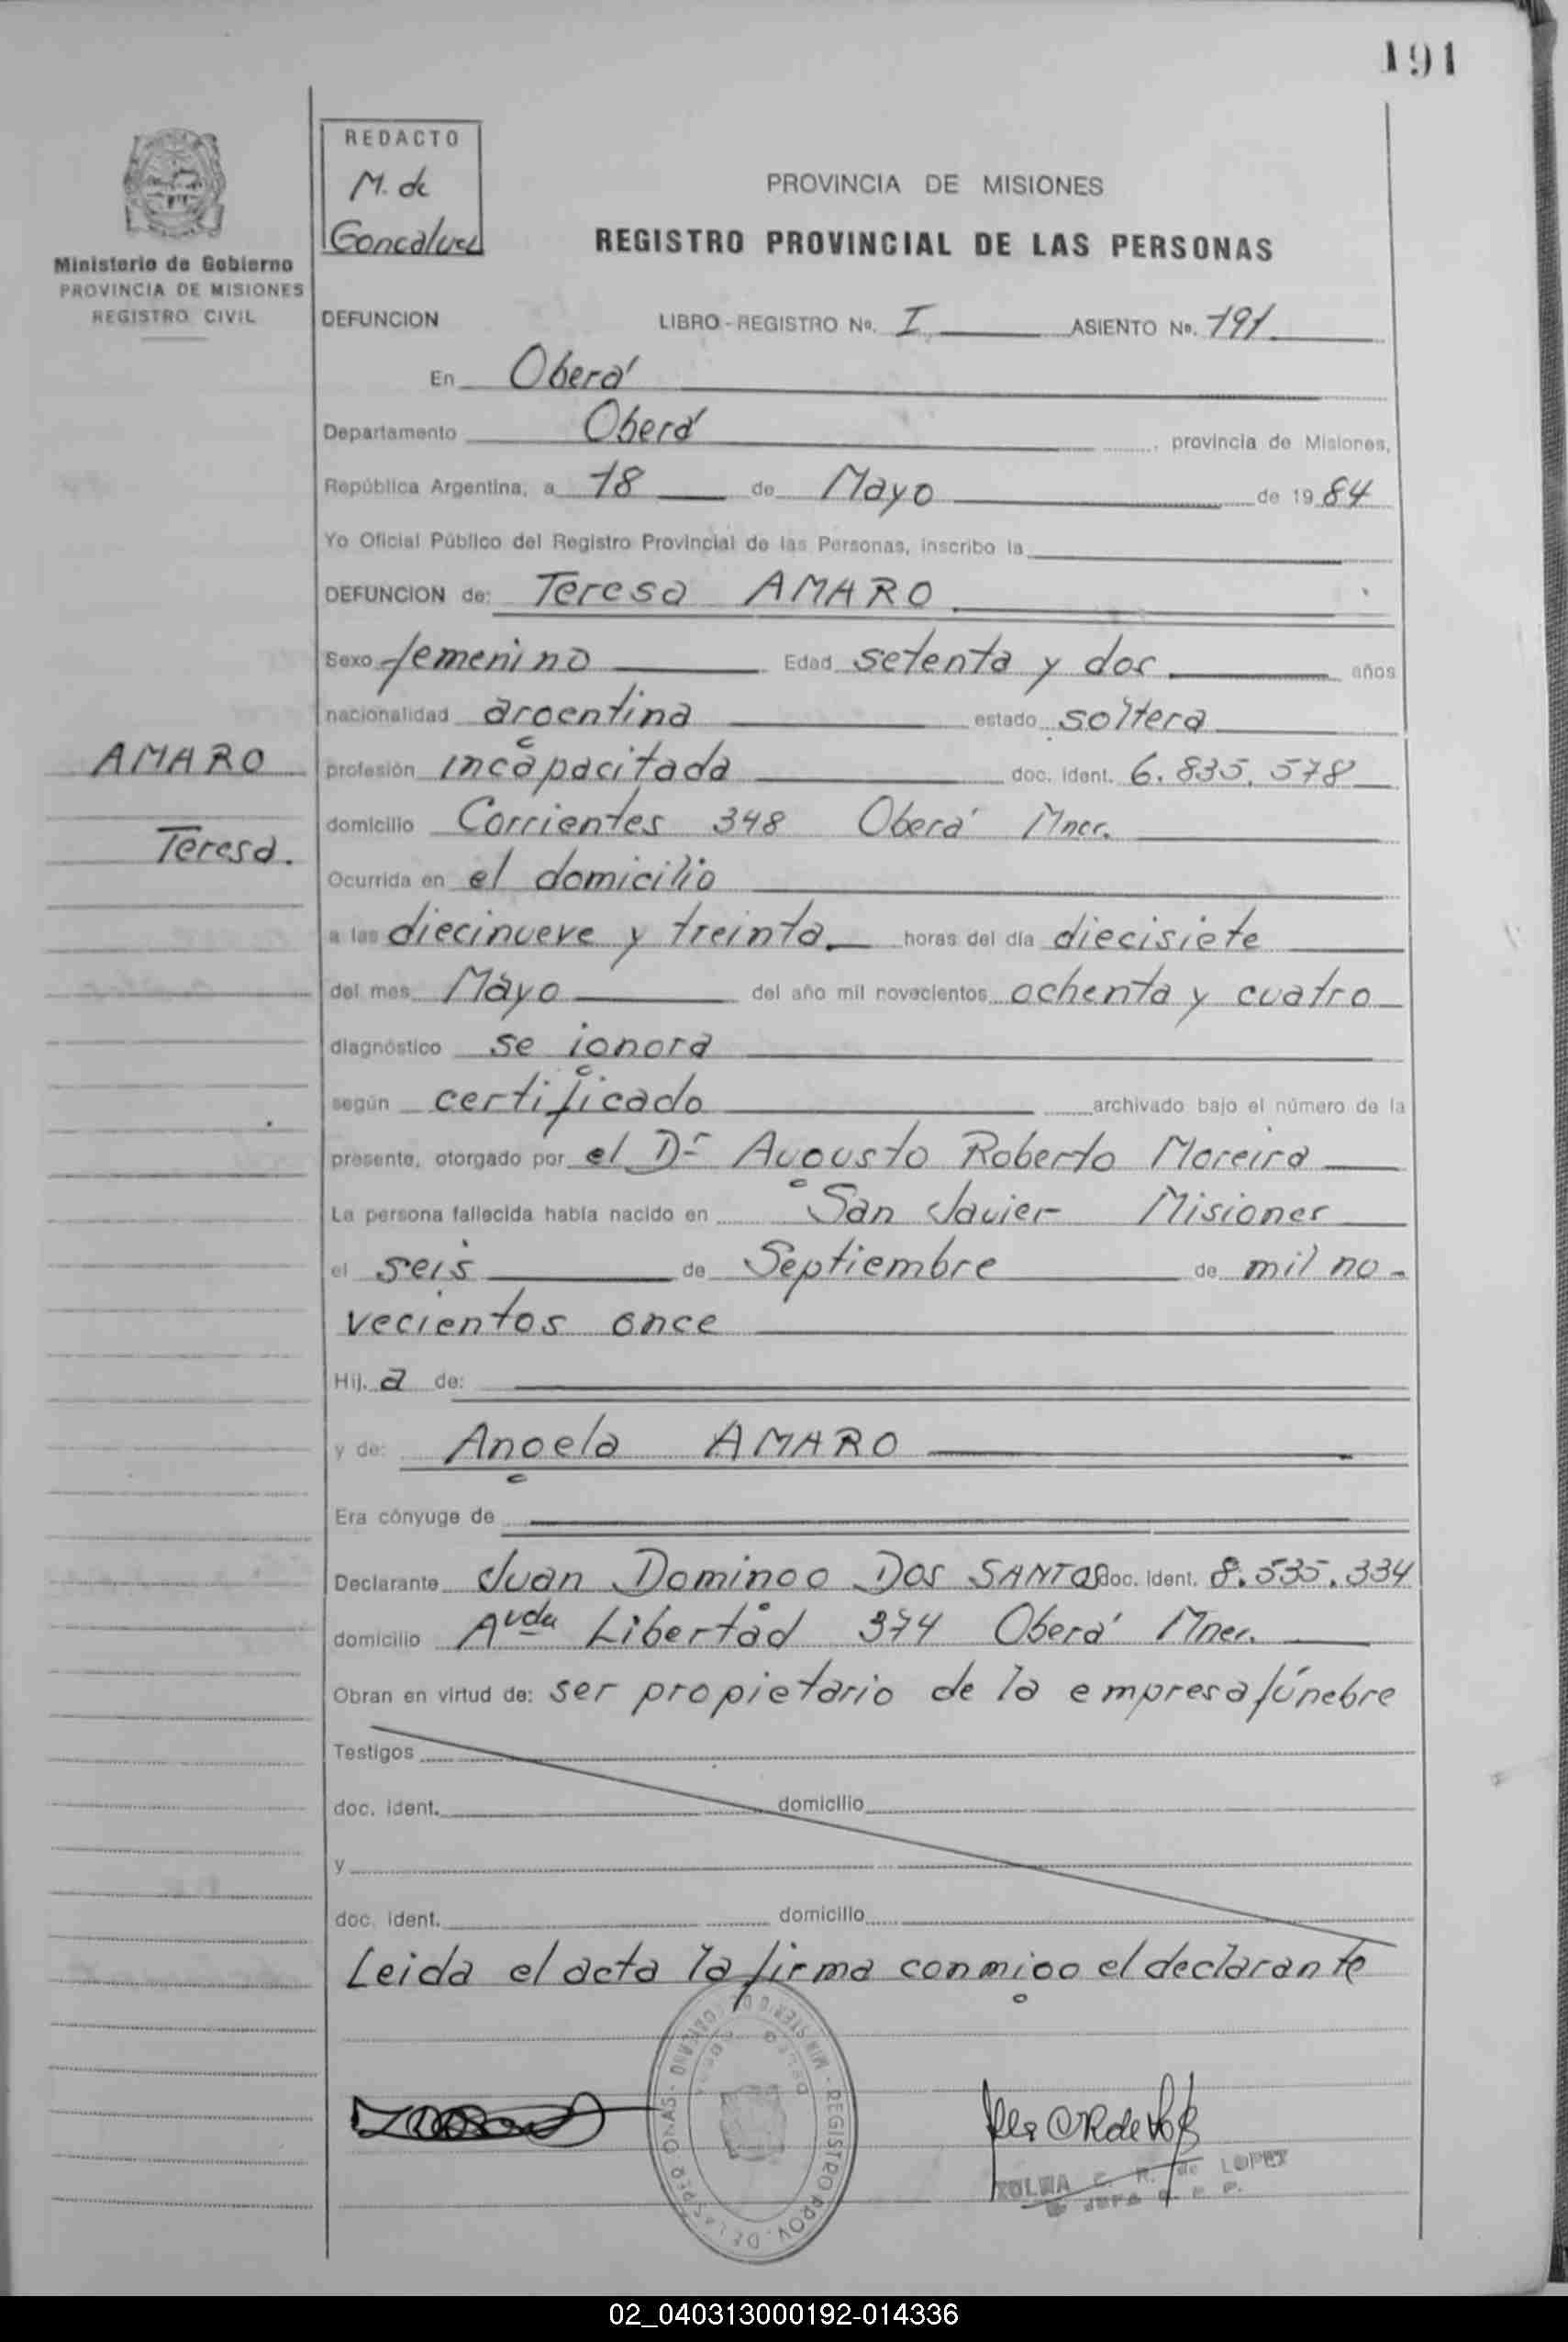 191
REDACTO
M. de
Goncalves
Ministerio de Gobierno
PROVINCIA DE MISIONES
REGISTRO CIVIL
PROVINCIA DE MISIONES
REGISTRO PROVINCIAL DE LAS PERSONAS
DEFUNCION LIBRO - REGISTRO No. I ASIENTO No. 191
En Oberá
Departamento Oberá, provincia de Misiones,
República Argentina, a 18 de Mayo de 1984
Yo Oficial Público del Registro Provincial de las Personas, inscribo la
DEFUNCION de: Teresa AMARO
Sexo femenino Edad setenta y dos años
nacionalidad argentina estado soltera
AMARO
Teresa.
profesión incapacitada doc. ident. 6.835.578
domicilio Corrientes 348 Oberá Mnes.
Ocurrida en el domicilio
a las diecinueve y treinta. horas del día diecisiete
del mes Mayo del año mil novecientos ochenta y cuatro
diagnóstico se ignora
según certificado archivado bajo el número de la
presente, otorgado por el Dr Augusto Roberto Moreira
La persona fallecida había nacido en San Javier Misiones
el seis de Septiembre de mil no-
vecientos once
Hij. a de:
y de: Angela AMARO
Era cónyuge de
Declarante Juan Domingo Dos SANTOS doc. ident. 8.535.334
domicilio Avda Libertad 374 Oberá Mnes.
Obran en virtud de: ser propietario de la empresa fúnebre
Testigos
doc. ident. domicilio
y
doc. ident. domicilio
Leida el acta la firma conmigo el declarante
MINISTERIO D GOBIERNO - REGISTRO PROV. DE LAS PERSONAS
C. R. de LOPEZ
JEFA
02_040313000192-014336